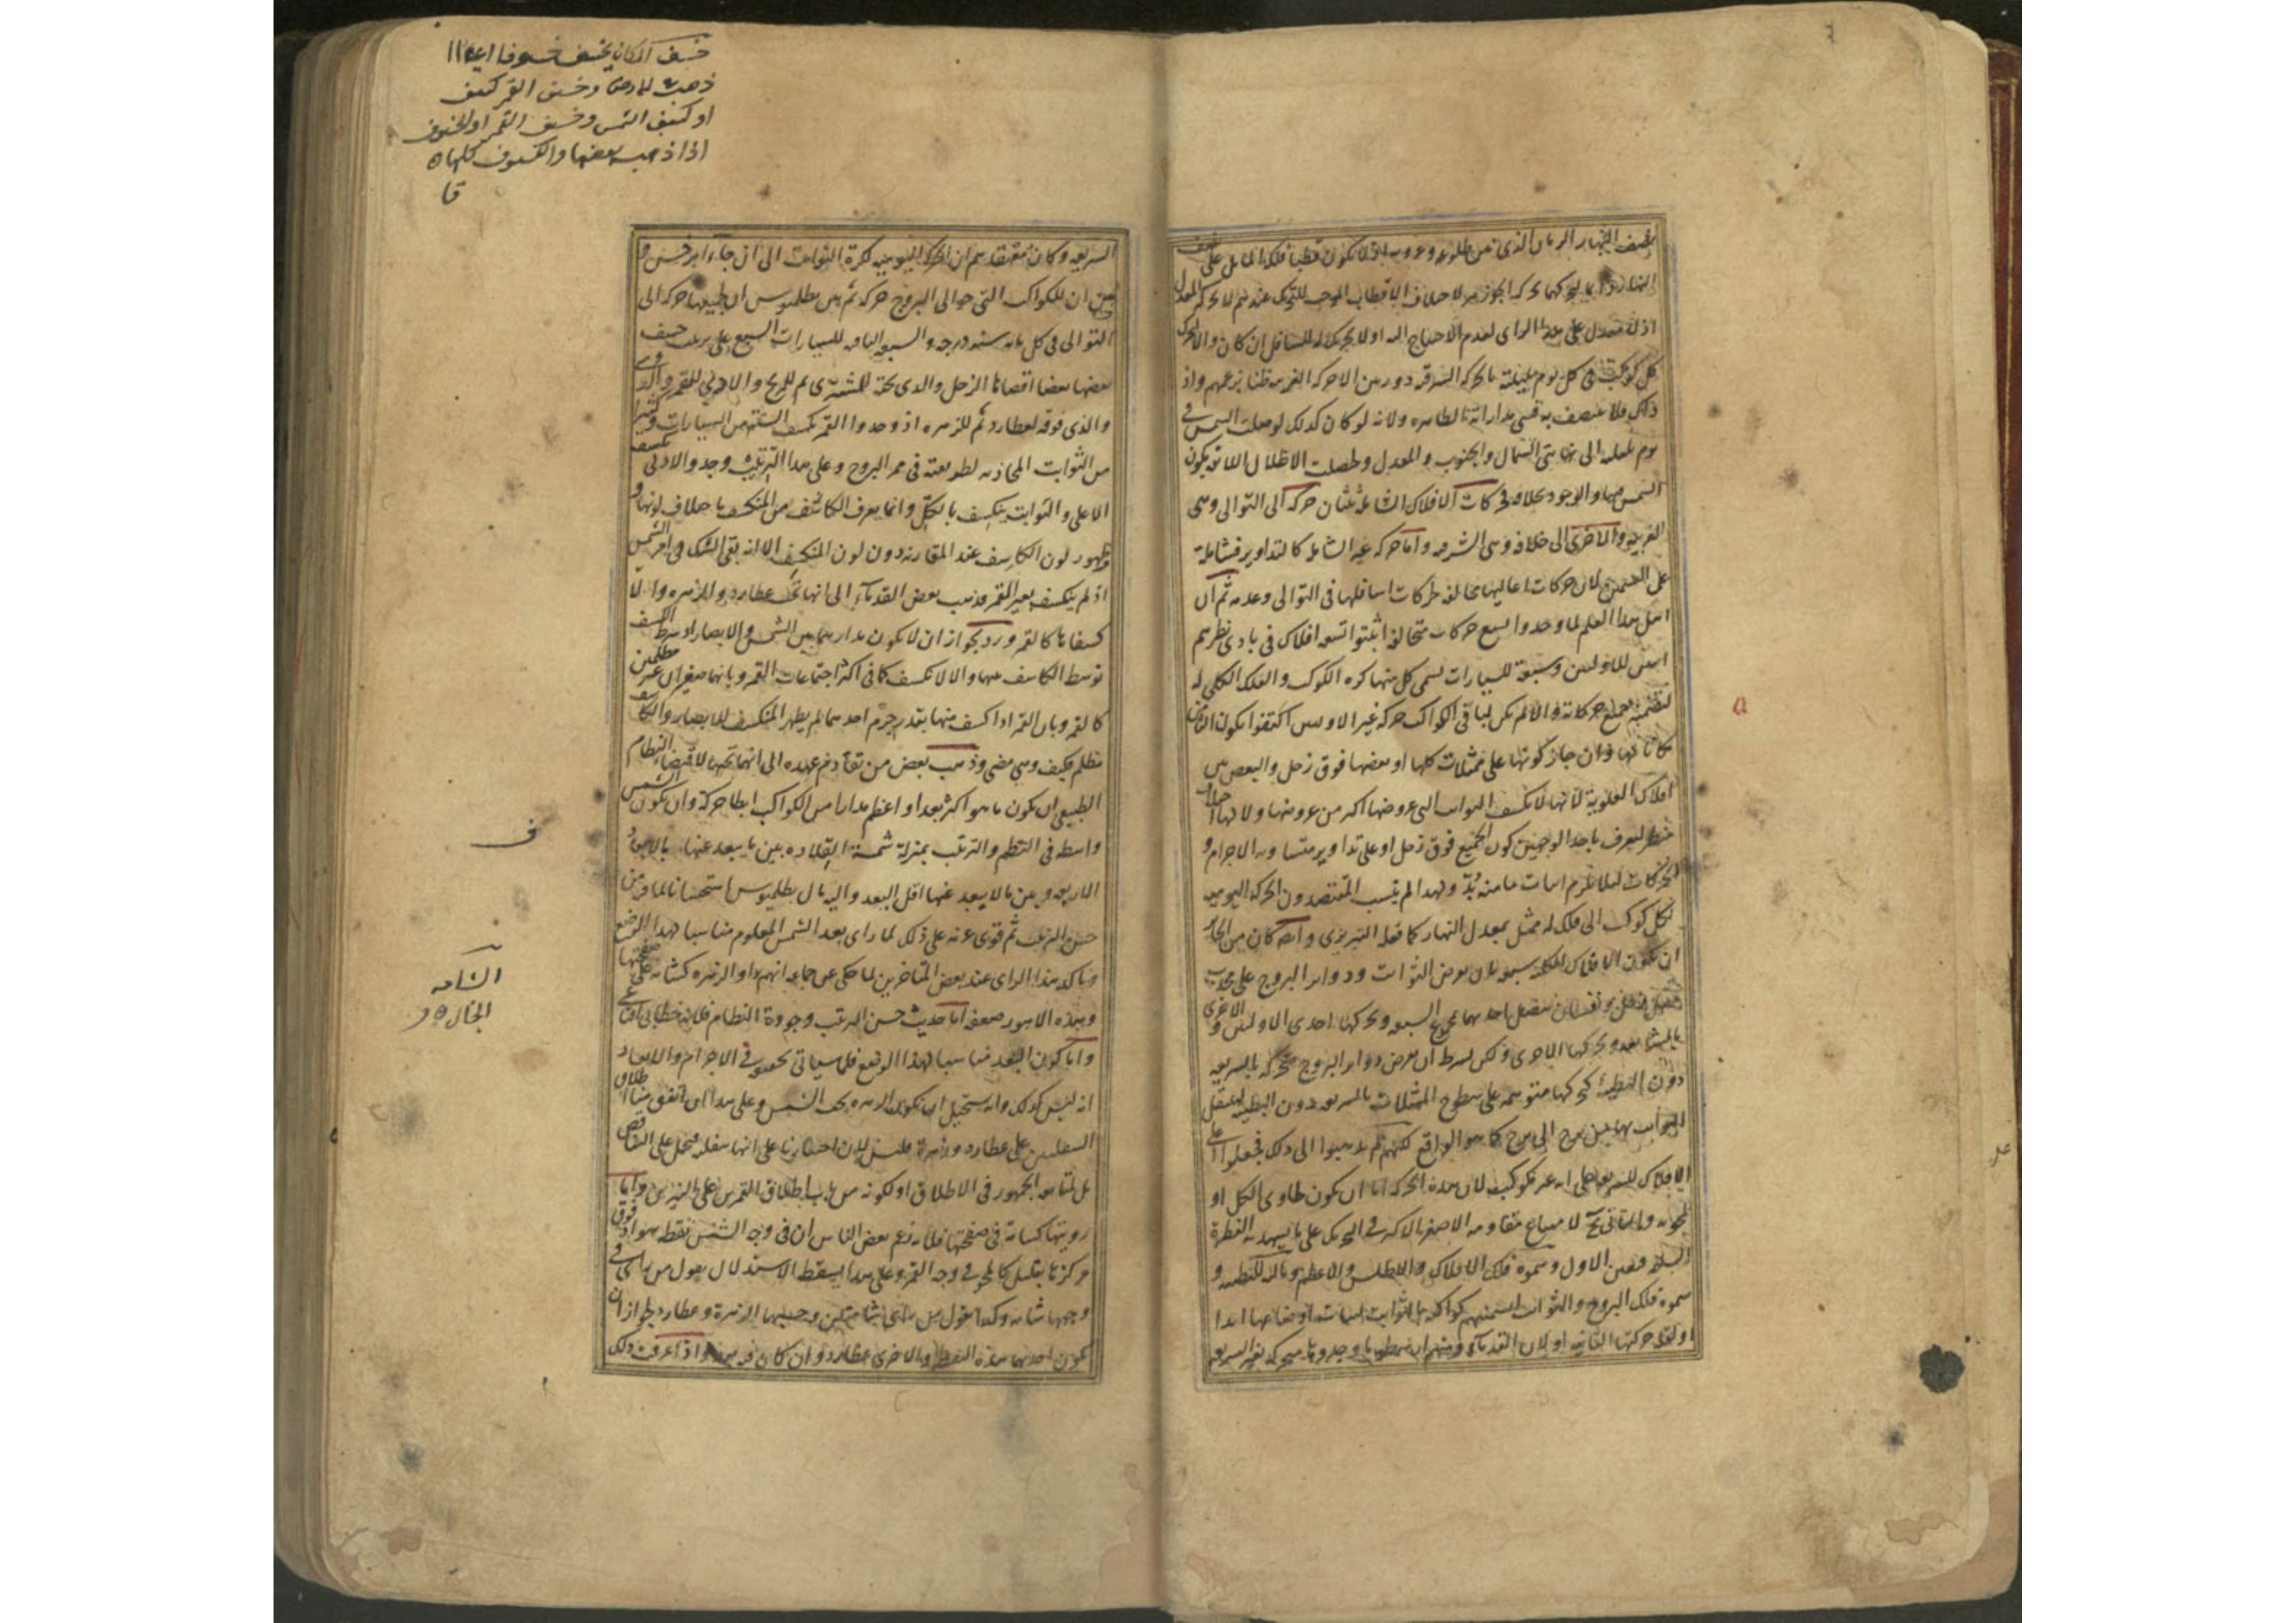 نصف النهار الزمان الذي من طلوعه وغروبه اذ لا يكون قطبا فلك المايل على نصف
النهار بحركة لاختلاف الاقطاب الموجب للتحريك عندهم لا لحركة المعدل
اذ له معدل على هذا الراى لعدم الاحتياج اليه اولا يحركه للسافل ان كان والا لتحرك
كل كوكب في كل يوم بليلته بالحركة الشرقية دورة من الا حركة القمر ظنا بزعمهم واذ
ذاك فلا ينصف به قسى مداراته الظاهرة ولانه لو كان كذلك لوصلت الشمس في
يوم بليلته الى نهايتى الشمال والجنوب والمعدل وحصلت الاظلال اللاتي يكون
الشمس فيها والوجود بخلافه حركات الافلاك الشاملة ثنتان حركة الى التوالى وهى
الغربية والاخرى الى خلافه وهى الشرقية واما حركة غير الشاملة كالتداوير فشاملة
على القسمين لان حركات اعاليها مخالفة لحركات اسافلها فى التوالى وعدمه ثم ان
اهل هذا العلم لما وجدوا تسع حركات متخالفة اثبتوا تسعة افلاك فى بادى نظرهم
اثنين للاوليين وسبعة للسيارات يسمى كل منها كرة الكوكب والفلك الكلى له
لتضمنه جميع حركاته والا لم يكن لباقى الكواكب حركة غير الاوليين اكتفوا بكون الثامن
مكانا لها وان جاز كونها على ممثلات كلها او بعضها فوق زحل والبعض بين
افلاك العلوية لانها لا تكسف الثوابت التي عروضها اكثر من عروضها ولا لها اختلاف
منظر ليعرف باحد الوجهين كون الجميع فوق زحل او على تداوير متساوية الاجرام و
الحركات لئلا يلزم اثبات ما منه بُدّ ولهذا لم ينسب المقتصدون الحركة اليومية
لكل كوكب الى فلك له ممثل بمعدل النهار كما فعله التبريزى وايضا كان من الجائز
ان يكون الافلاك الكلية سبعة بان يفرض الثوابت ودواير البروج على محدب
ممثل زحل ونفسان تتصل احديهما بمجموع السبعة وتحركها احدى الاوليين والاخرى
بالسابعة وتحركها الاخرى ولكن بشرط ان يفرض دواير البروج متحركة بالسريعة
دون البطيئة كحركها متوهمة على سطوح الممثلات بالسريعة دون البطيئة لينتقل
الثوابت بها من برج الى برج كما هو الواقع لكنهم لم يذهبوا الى ذلك فجعلوا اعلى
الافلاك للسريعة على انه غير مكوكب لان هذه الحركة اما ان يكون لحاوى الكل او
لمحويه والثاني محال لامتناع مقاومة الاصغر بالاكبر في التحريك على ما يشهد به الفطرة
السليمة فتعين الاول وسموه فلك الافلاك والاطلس والاعظم
سموه فلك البروج والثوابت لتسميتهم كواكبه بالثوابت لثبات اوضاعها ابدا
او لقلة حركتها الثانية او لان القدماء ومنهم ارسطو ما وجدوها متحركة بغير السريعة
السريعة وكان معتقدهم ان الحركة اليومية لكرة الثوابت الى ان جاء ابرخس و
بين ان للكواكب التي حوالى البروج حركة ثم بين بطلميوس ان لجميعها حركة الى
التوالى فى كل مائة سنة درجة والسبعة الباقية للسيارات السبع على ترتيب خسف
بعضها بعضا اقصاها لزحل والذى تحته للمشترى ثم للمريخ والادنى للقمر
والذى فوقه لعطارد ثم للزهرة اذ وجدوا القمر يكسف الستة من السيارات وكثيرا
من الثوابت المحاذية لطريقته فى ممر البروج وعلى هذا الترتيب وجدوا الادنى يكسف
الاعلى والثوابت ينكسف بالكلّ وانما يعرف الكاسف من المنكسف باختلاف لونها و
ظهور لون الكاسف عند المقارنة دون لون المنكسف الا انه بقى الشك فى امر الشمس
اذ لم ينكسف بغير القمر فذهب بعض القدماء الى انها تحت عطارد والزهرة والا
كسفاها كالقمر ورد بجواز ان لا يكون مدارهما بين الشمس والابصار اذ شرط الكسف
توسط الكاسف بينهما والا لا تكسف كما فى اكثر اجتماعات القمر وبانها صغيران غير مظلمين
كالقمر وبان القمر اذا كسف منها بقدر جرم احدهما لم يظهر المنكسف للابصار والكاسف
مظلم فكيف وهى مضئ وذهب بعض من تقادم عهده الى انها تحتها لاقتضاء النظام
الطبيعى ان يكون ما هو اكثر بعدا او اعظم مدارا من الكواكب ابطا حركة وان يكون الشمس
واسطة فى النظم والترتيب بمنزلة شمسة القلادة بين ما يبعد عنها بالابعاد
الاربعة وبين ما لا يبعد عنها اقل البعد واليه مال بطلميوس استحسانا لما فيه من
حسن الترتيب ثم قوى عزمه على ذلك لما راى بعد الشمس المعلوم مناسبا لهذا الموضع
وتاكد هذا الراى عند بعض المتاخرين لما حكى عن جماعة انهم راوا الزهرة كشامة على صفحتها
وهذه الامور ضعيفة اما حديث حسن الترتيب وجودة النظام فلانه خطابى اقناعى
واما كون البعد مناسبا لهذا الموضع فلما سياتى تحقيقه في الاجرام والابعاد
انه ليس كذلك وانه يستحيل ان يكون الزهرة تحت الشمس وعلى هذا ان اتفق منا اطلاق
السفليين على عطارد وزهرة فليس لان اختيارنا على انها سفلية فيحمل على التناقض
بل لمتابعة الجمهور فى الاطلاق او لكونه من باب اطلاق القمرين على النيرين واما
رويتها كشامة فى صفحتها فلانه زعم بعض الناس ان فى وجه الشمس نقطة سوداء فوق
مركزها بقليل كالمحو في وجه القمر وعلى هذا يسقط الاستدلال بقول من راى في
وجهها شامة وكذا بقول من راى شامتين وحسبها الزهرة وعطارد لجواز ان
يكون احديهما هذه النقطة والاخرى عطارد وان كان فوقه واذا عرفت ذلك
خسف المكان يخسف خسوفا
ذهب في الارض وخسف القمر كسف
او كسف الشمس وخسف القمر او الخسوف
اذا ذهب بعضها والكسوف كلها
قا
ف
الشامه
الخال